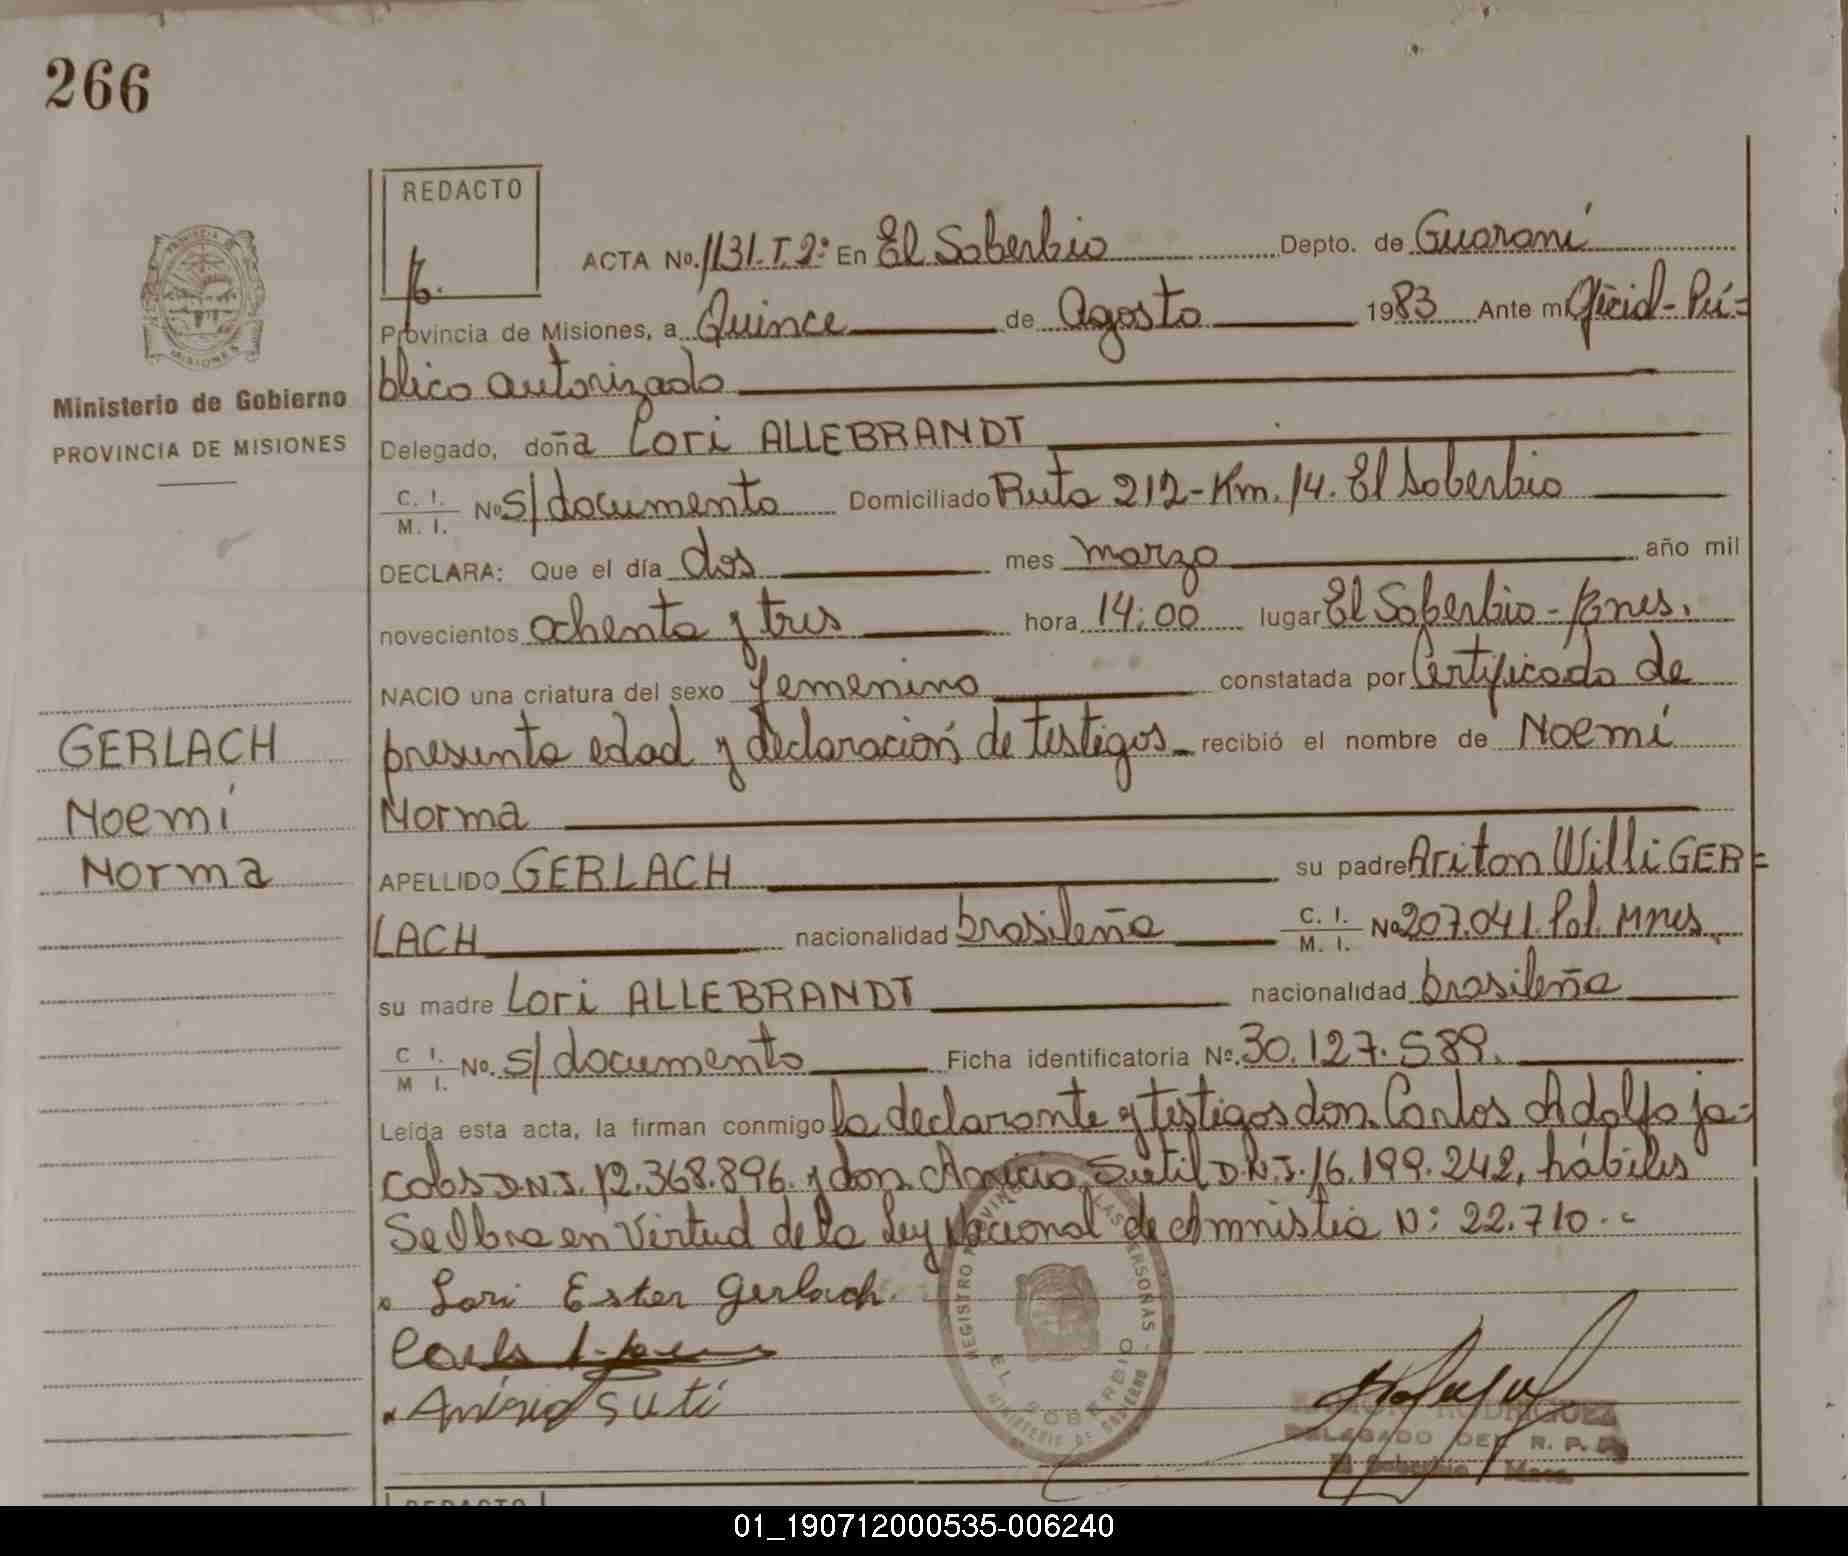 266
REDACTO
ACTA No. 1131.T.2º En El Soberbio Depto. de Guaraní
Provincia de Misiones, a Quince de Agosto 1983 Ante mi Oficial-Pú=
blico autorizado
Ministerio de Gobierno
PROVINCIA DE MISIONES
Delegado, doña Lori ALLEBRANDT
C. I. M. I. No S/documento Domiciliado Ruta 212-Km. 14. El Soberbio
DECLARA: Que el día dos mes marzo año mil
novecientos ochenta y tres hora 14:00 lugar El Soberbio-Mnes.
NACIO una criatura del sexo femenino constatada por Certificado de
presunta edad y declaración de testigos recibió el nombre de Noemí
Norma
GERLACH
Noemí
Norma
APELLIDO GERLACH su padre Ariton Willi GER=
LACH nacionalidad brasileña C. I. M. I. No 207.041. Pol. Mnes.
su madre Lori ALLEBRANDT nacionalidad brasileña
C I. M I. No. S/documento Ficha identificatoria No. 30.127.589.
Leída esta acta, la firman conmigo la declarante y testigos don Carlos Adolfo ja=
cobs D.N.I. 12.368.896. y don Sutil D.N.I. 16.199.242, hábiles
Se labra en Virtud de la Ley Nacional de Amnistia N: 22.710.-
Lori Ester Gerlach
REGISTRO PROVINCIAL DE LAS PERSONAS
EL SOBERBIO
MINISTERIO DE GOBIERNO
RODRIGUEZ
DELEGADO DEL R. P. P.
El Soberbio Mnes.
REDACTO
01_190712000535-006240